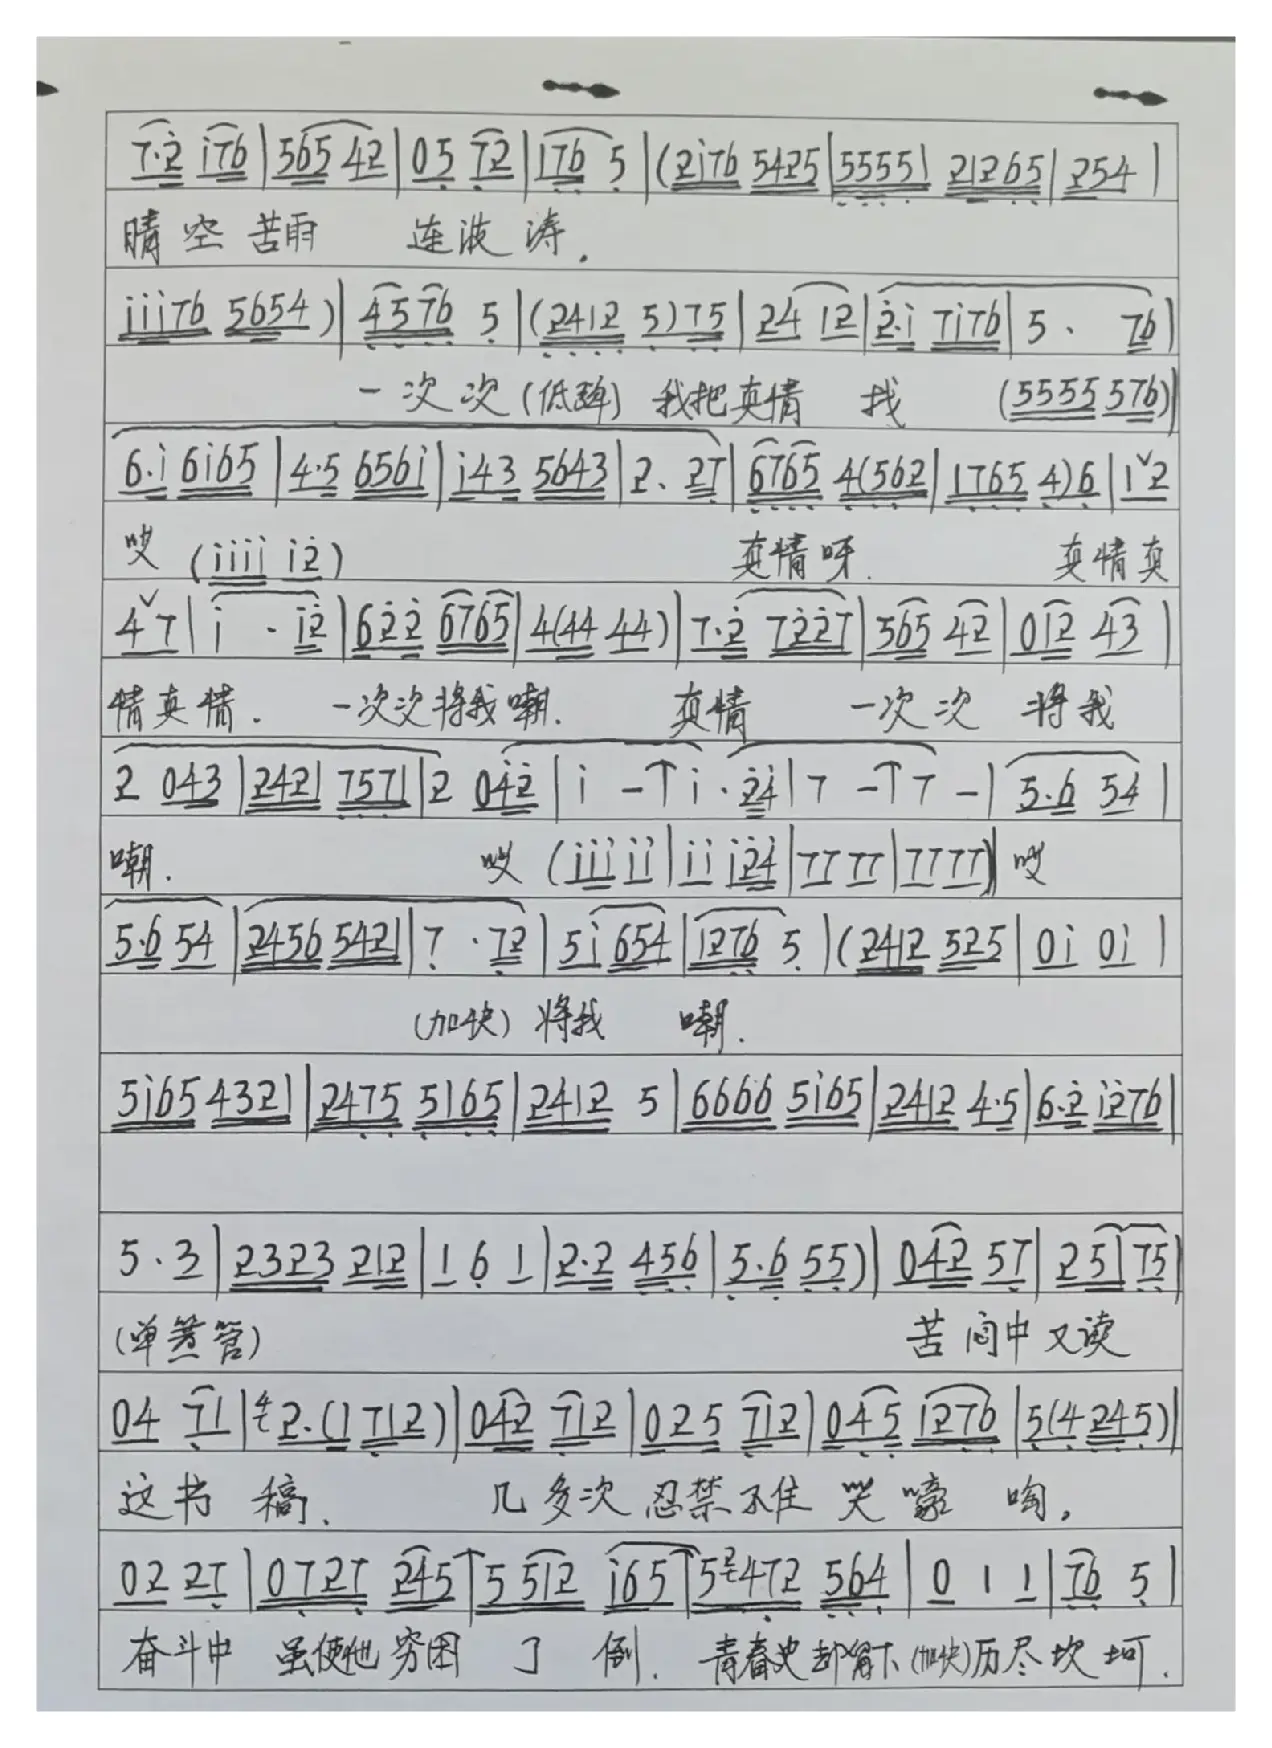 7·2̇ i76 | 565 42 | 05 72 | 176 5 | (2i76 5425 | 55551 21265 | 254 |
晴空苦雨 连波涛.
iii76 5654) | 4576 5 | (2412 5)75 | 24 12 | 2̇·i 7i76 | 5· 76 |
一次次(低蹈) 我把真情 找 (5555 576)
6·i 6i65 | 4·5 656i | i43 5643 | 2· 27 | 6765 4(562 | 1765 4)6 | 1ˇ2
哎 (iiii i2̇) 真情呀. 真情真
4ˇ7 | i · i2̇ | 62̇2̇ 6765 | 4(44 44) | 7·2̇ 72̇2̇7 | 565 42 | 012 43 |
情真情. 一次次将我嘲. 真情 一次次 将我
2 043 | 2421 7571 | 2 04̇2̇ | i -↑i·2̇4̇ | 7 -↑7 - | 5·6 54 |
嘲. 哎 (iii ii | ii i2̇4̇ | 77 77 | 7777) 哎
5·6 54 | 2456 5421 | 7 ·72 | 5i 654 | 1276 5 | (2412 525 | 0i 0i |
(加快) 将我 嘲.
5i65 4321 | 2475 5165 | 2412 5 | 6666 5i65 | 2412 4·5 | 6·2̇ i2̇76 |
5·3 | 2323 212 | 1 6 1 | 2·2 456 | 5·6 55) | 042 57 | 25 | 75 |
(单 管) 苦闷中又读
04 71 | 2·(1 712) | 042 712 | 025 712 | 045 1276 | 5(4 245) |
这书 稿. 几多次 忍禁不住 哭嚎啕.
02 27 | 0727 245↑5 512 i65↑5 472 564 | 0 1 1 | 76 5 |
奋斗中 虽使他穷困 了 倒. 青春史却留下(加快)历尽坎坷.